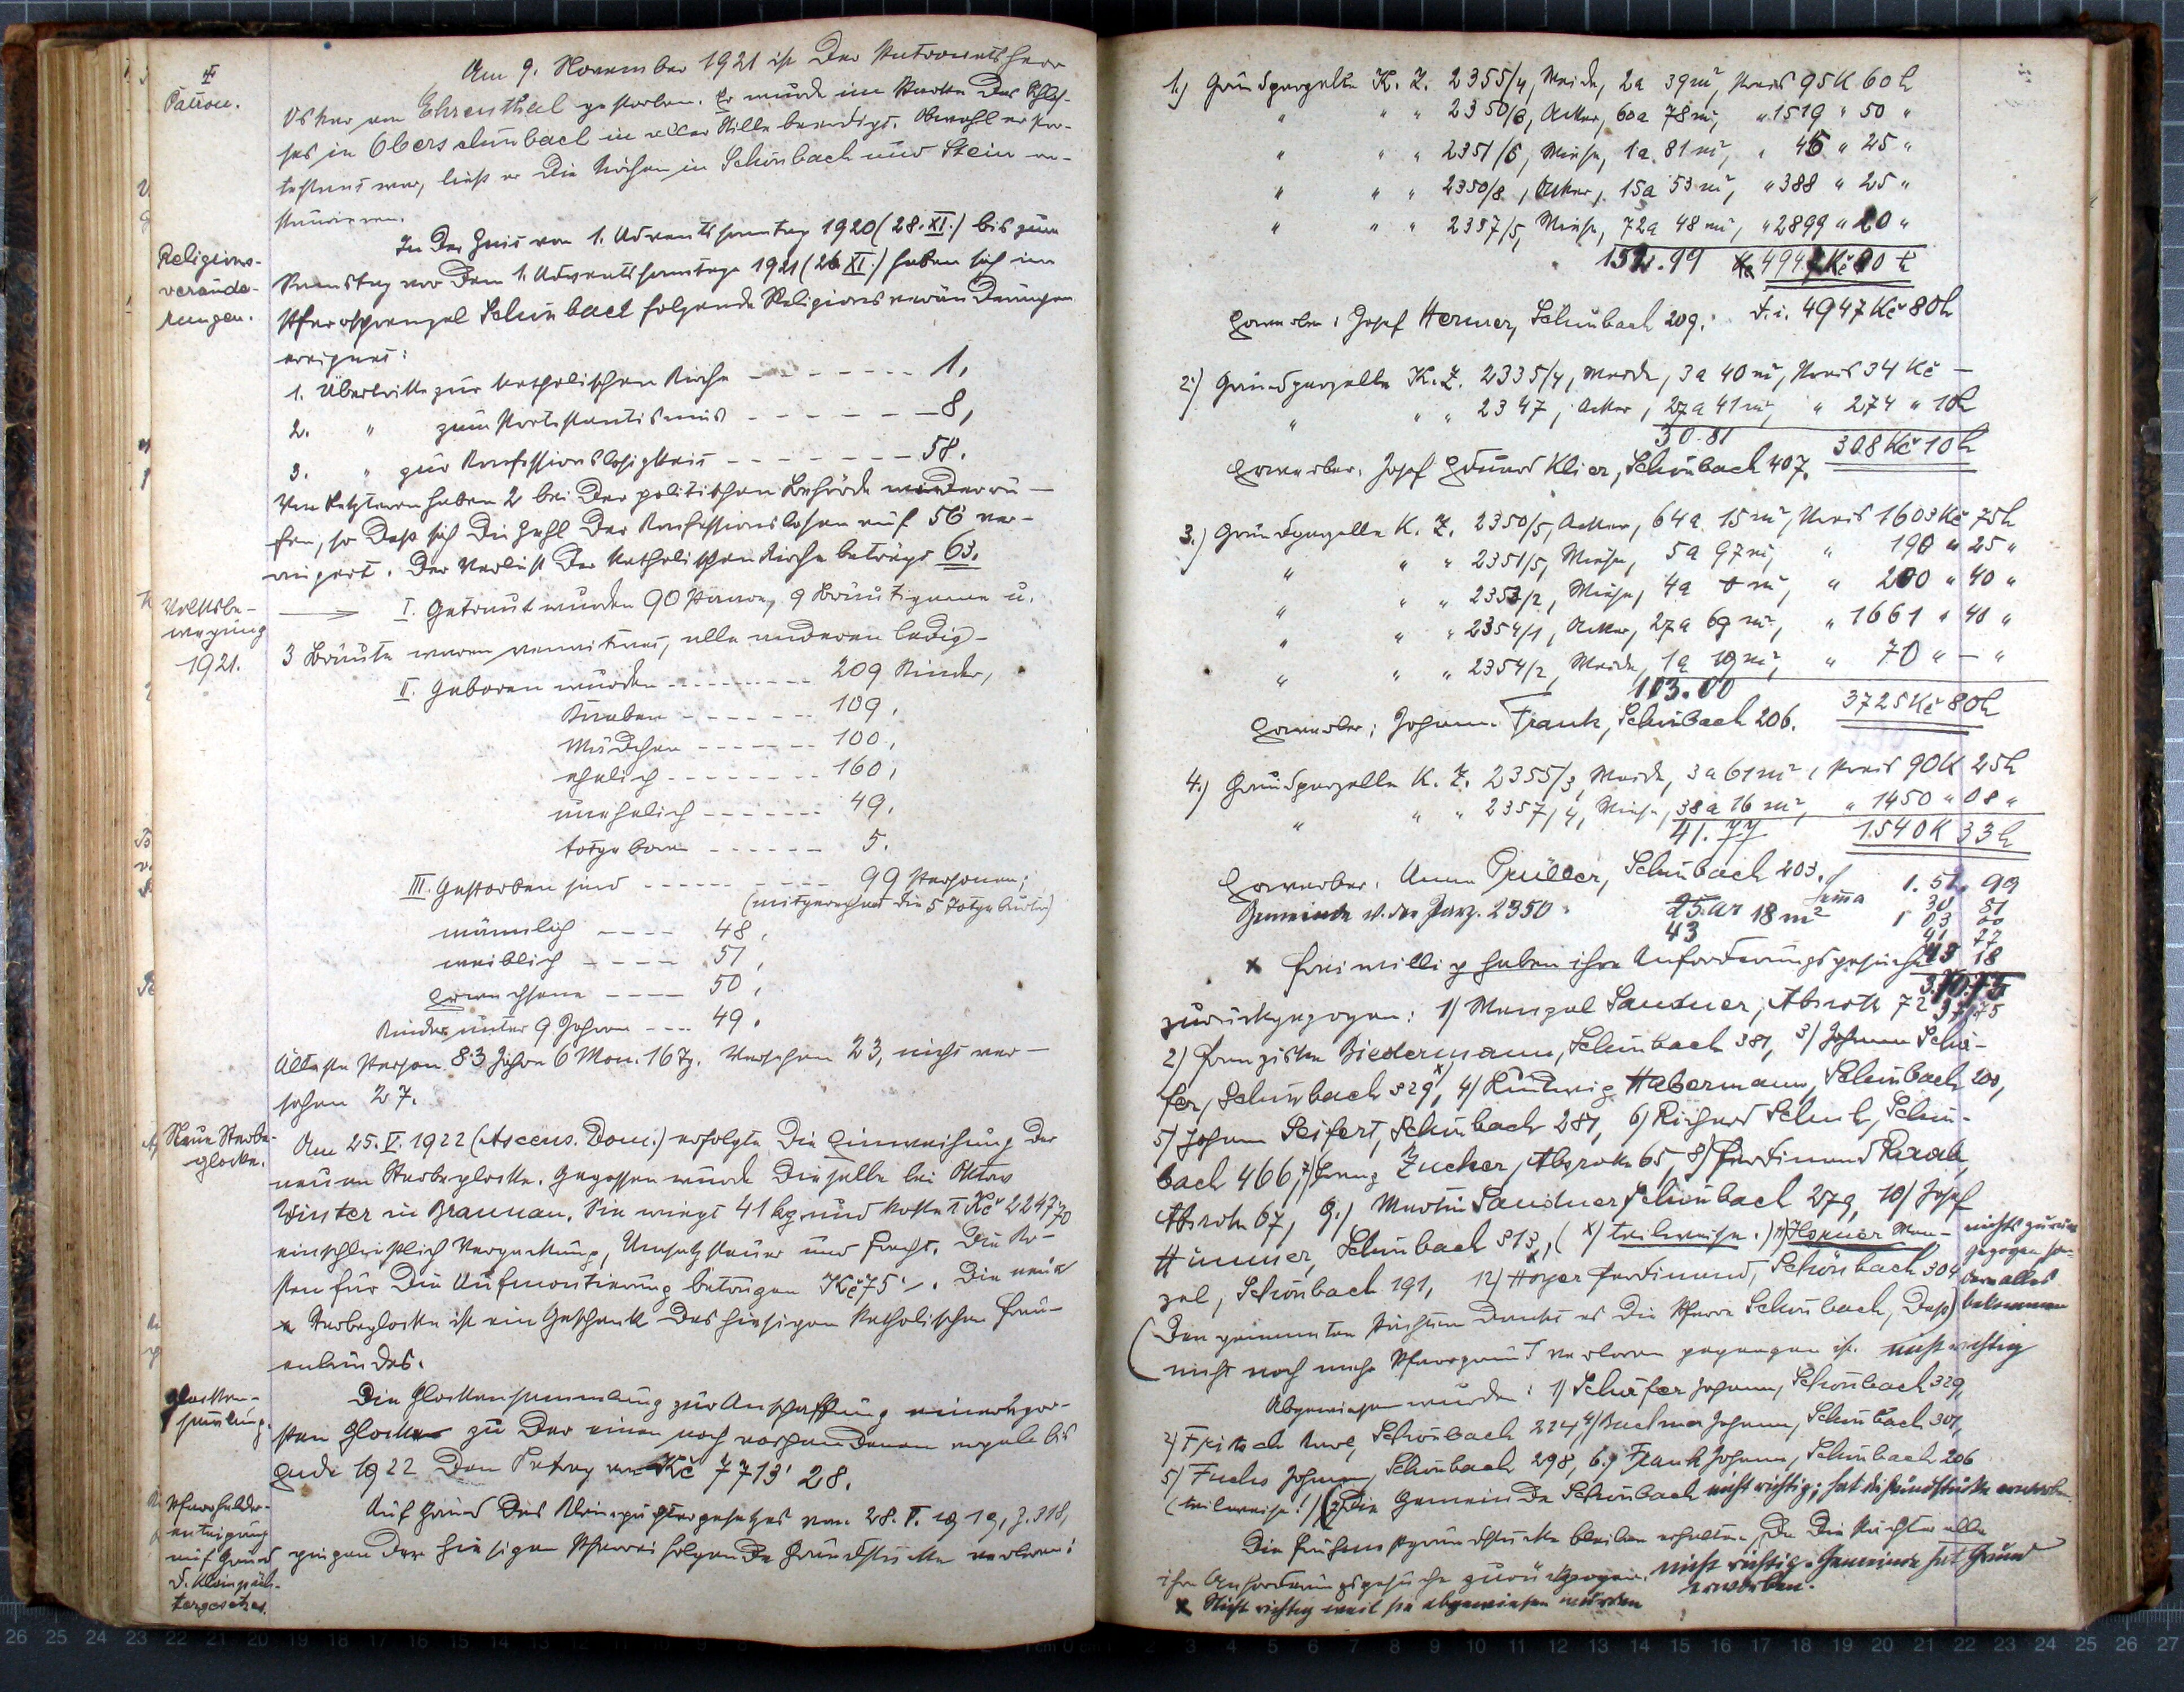 † Patron.
Am 9. November 1921 ist der Patronatsherr
Oskar von Ehrenthal gestorben. Er wurde im Parke des Schlos-
ses in Oberschönbach in aller Stille beerdigt. Obwohl er Pro-
testant war, ließ er die Kirchen in Schönbach und Stein re-
staurieren.
Religions-
verände-
rungen.
In der Zeit vom 1. Adventsonntag 1920 (28. XI.) bis zum
Samstag vor dem 1. Adventsonntage 1921 (26. XI.) haben sich im
Pfarrsprengel Schönbach folgende Religionsveränderungen
ereignet:
1. Übertritte zur katholischen Kirche - - - - - - - 1,
2. " zum Protestantismus - - - - - - 8,
3. " zur Konfessionslosigkeit - - - - - - 58.
Von letzteren haben 2 bei der politischen Behörde wiederru-
fen, so daß sich die Zahl der Konfessionslosen auf 56 ver-
ringert. Der Verlust der katholischen Kirche beträgt 63.
Volksbe-
wegung
1921.
I. Getraut wurden 90 Paare, 9 Bräutigame u.
3 Bräute waren verwitwet, alle anderen ledig-
II. Geboren wurden - - - - - - - 209 Kinder,
Knaben - - - - - - 109,
Mädchen - - - - - - 100,
ehelich - - - - - - 160,
unehelich - - - - - - 49,
totgeboren - - - - - - 5.
III. Gestorben sind - - - - - - - 99 Personen;
(mitgerechnet die 5 Totgeburten)
männlich - - - - 48,
weiblich - - - - 51,
Erwachsene - - - - 50,
Kinder unter 9 Jahren - - - - 49.
Älteste Person 83 Jahre 6 Mon. 16 Tg. Versehen 23, nicht ver-
sehen 27.
Neue Sterbe-
glocke.
Am 25. V. 1922 (Ascens. Dom.) erfolgte die Einweihung der
neuen Sterbeglocke. Gegossen wurde dieselbe bei Oktav
Winter in Braunau. Sie wiegt 41 kg und kostet Kč 2247.70
einschließlich Verpackung, Umsatzsteuer und Fracht. Die Ko-
sten für die Aufmontierung betrugen Kč 75'-. Die neue
Sterbeglocke ist ein Geschenk des hiesigen katholischen Frau-
enbundes.
Glocken-
sammlung.
Die Glockensammlung zur Anschaffung einer größ-
ten Glocke zu der einen noch vorhandenen ergab bis
Ende 1922 den Betrag von Kč 7713' 28.
Pfarrfelder-
enteignung
auf Grund
d. Kleinpäch-
tergesetzes.
Auf Grund des Kleinpächtergesetzes vom 28. V. 1919, Z. 318,
gingen der hiesigen Pfarrei folgende Grundstücke verloren:
1.) Grundparzelle K. Z. 2355/4, Weide, 2a 39 m², Preis 95 K 60 h
" " " 2350/6, Acker, 60a 78 m², " 1519 " 50 "
" " " 2351/6, Wiese, 1a 81 m², " 45 " 25 "
" " " 2350/8, Acker, 15a 53 m², " 388 " 25 "
" " " 2357/5, Wiese, 72a 48 m², " 2899 " 20 "
152.99 Kč 4947 Kč 80 h
Erwerber: Josef Hermer, Schönbach 209. d. i. 4947 Kč 80 h
2.) Grundparzelle K. Z. 2335/4, Weide, 3a 40 m², Preis 34 Kč —
" " " 2347, Acker, 27a 41 m², " 274 " 10 h
30.81 308 Kč 10 h
Erwerber: Josef Eduard Klier, Schönbach 407.
3.) Grundparzelle K. Z. 2350/5, Acker, 64a 15 m², Preis 1603 Kč 75 h
" " " 2351/5, Wiese, 5a 97 m², " 190 " 25 "
" " " 2353/2, Wiese, 4a 0 m², " 200 " 40 "
" " " 2354/1, Acker, 27a 69 m², " 1661 " 40 "
" " " 2354/2, Weide, 1a 19 m², " 70 " — "
103.00 3725 Kč 80 h
Erwerber: Johann Frank, Schönbach 206.
4.) Grundparzelle K. Z. 2355/3, Weide, 3a 61 m², Preis 90 K 25 h
" " " 2357/4, Wiese, 38a 16 m², " 1450 " 08 "
41.77 1.540 K 33 h
Erwerber: Anna Prüller, Schönbach 203.
Gemeinde v. der Parz. 2350 25 ar 18 m²
43
Suma 1.52.99
30 81
1 03 00
41 77
43 18
3.71.75
x Freiwillig haben ihre Anforderungsgesuche
zurückgezogen: 1) Wenzel Sandner, Absroth 72
2) Franziska Biedermann, Schönbach 381, 3) Johann Schä-
fer, Schönbach 329 x), 4) Ludwig Habermann, Schönbach 200,
5) Johann Seifert, Schönbach 281, 6) Richard Schuh, Schön-
bach 466, 7) Franz Zucker, Absroth 65, 8) Ferdinand
Absroth 67, 9.) Martin Sandner, Schönbach 279, 10) Josef
Hümmer, Schönbach 313, (x) teilweise.) 11) Hörner Wen-
zel, Schönbach 191, 12) Hoyer Ferdinand, Schönbach 304
nichts zurück
gezogen son-
dern alles
bekommen
(Den genannten Pächtern dankt es die Pfarre Schönbach, daß)
nicht noch mehr Pfarrgrund verloren gegangen ist. nicht richtig
Abgewiesen wurden: 1) Schäfer Johann, Schönbach 329,
2) Fritsch Karl, Schönbach 224, 4) Buchner Johann, Schönbach 301,
5) Fuchs Johann, Schönbach 298, 6.) Frank Johann, Schönbach 206
(teilweise!) 7) Die Gemeinde Schönbach nicht richtig; hat die Grundstücke erworben.
Die Grundstücke bleiben erhalten, da die Pächter alle
ihre Anforderungsgesuche zurückzogen. nicht richtig. Gemeinde hat Grund
erworben.
x Nicht richtig weil sie abgewiesen wurden